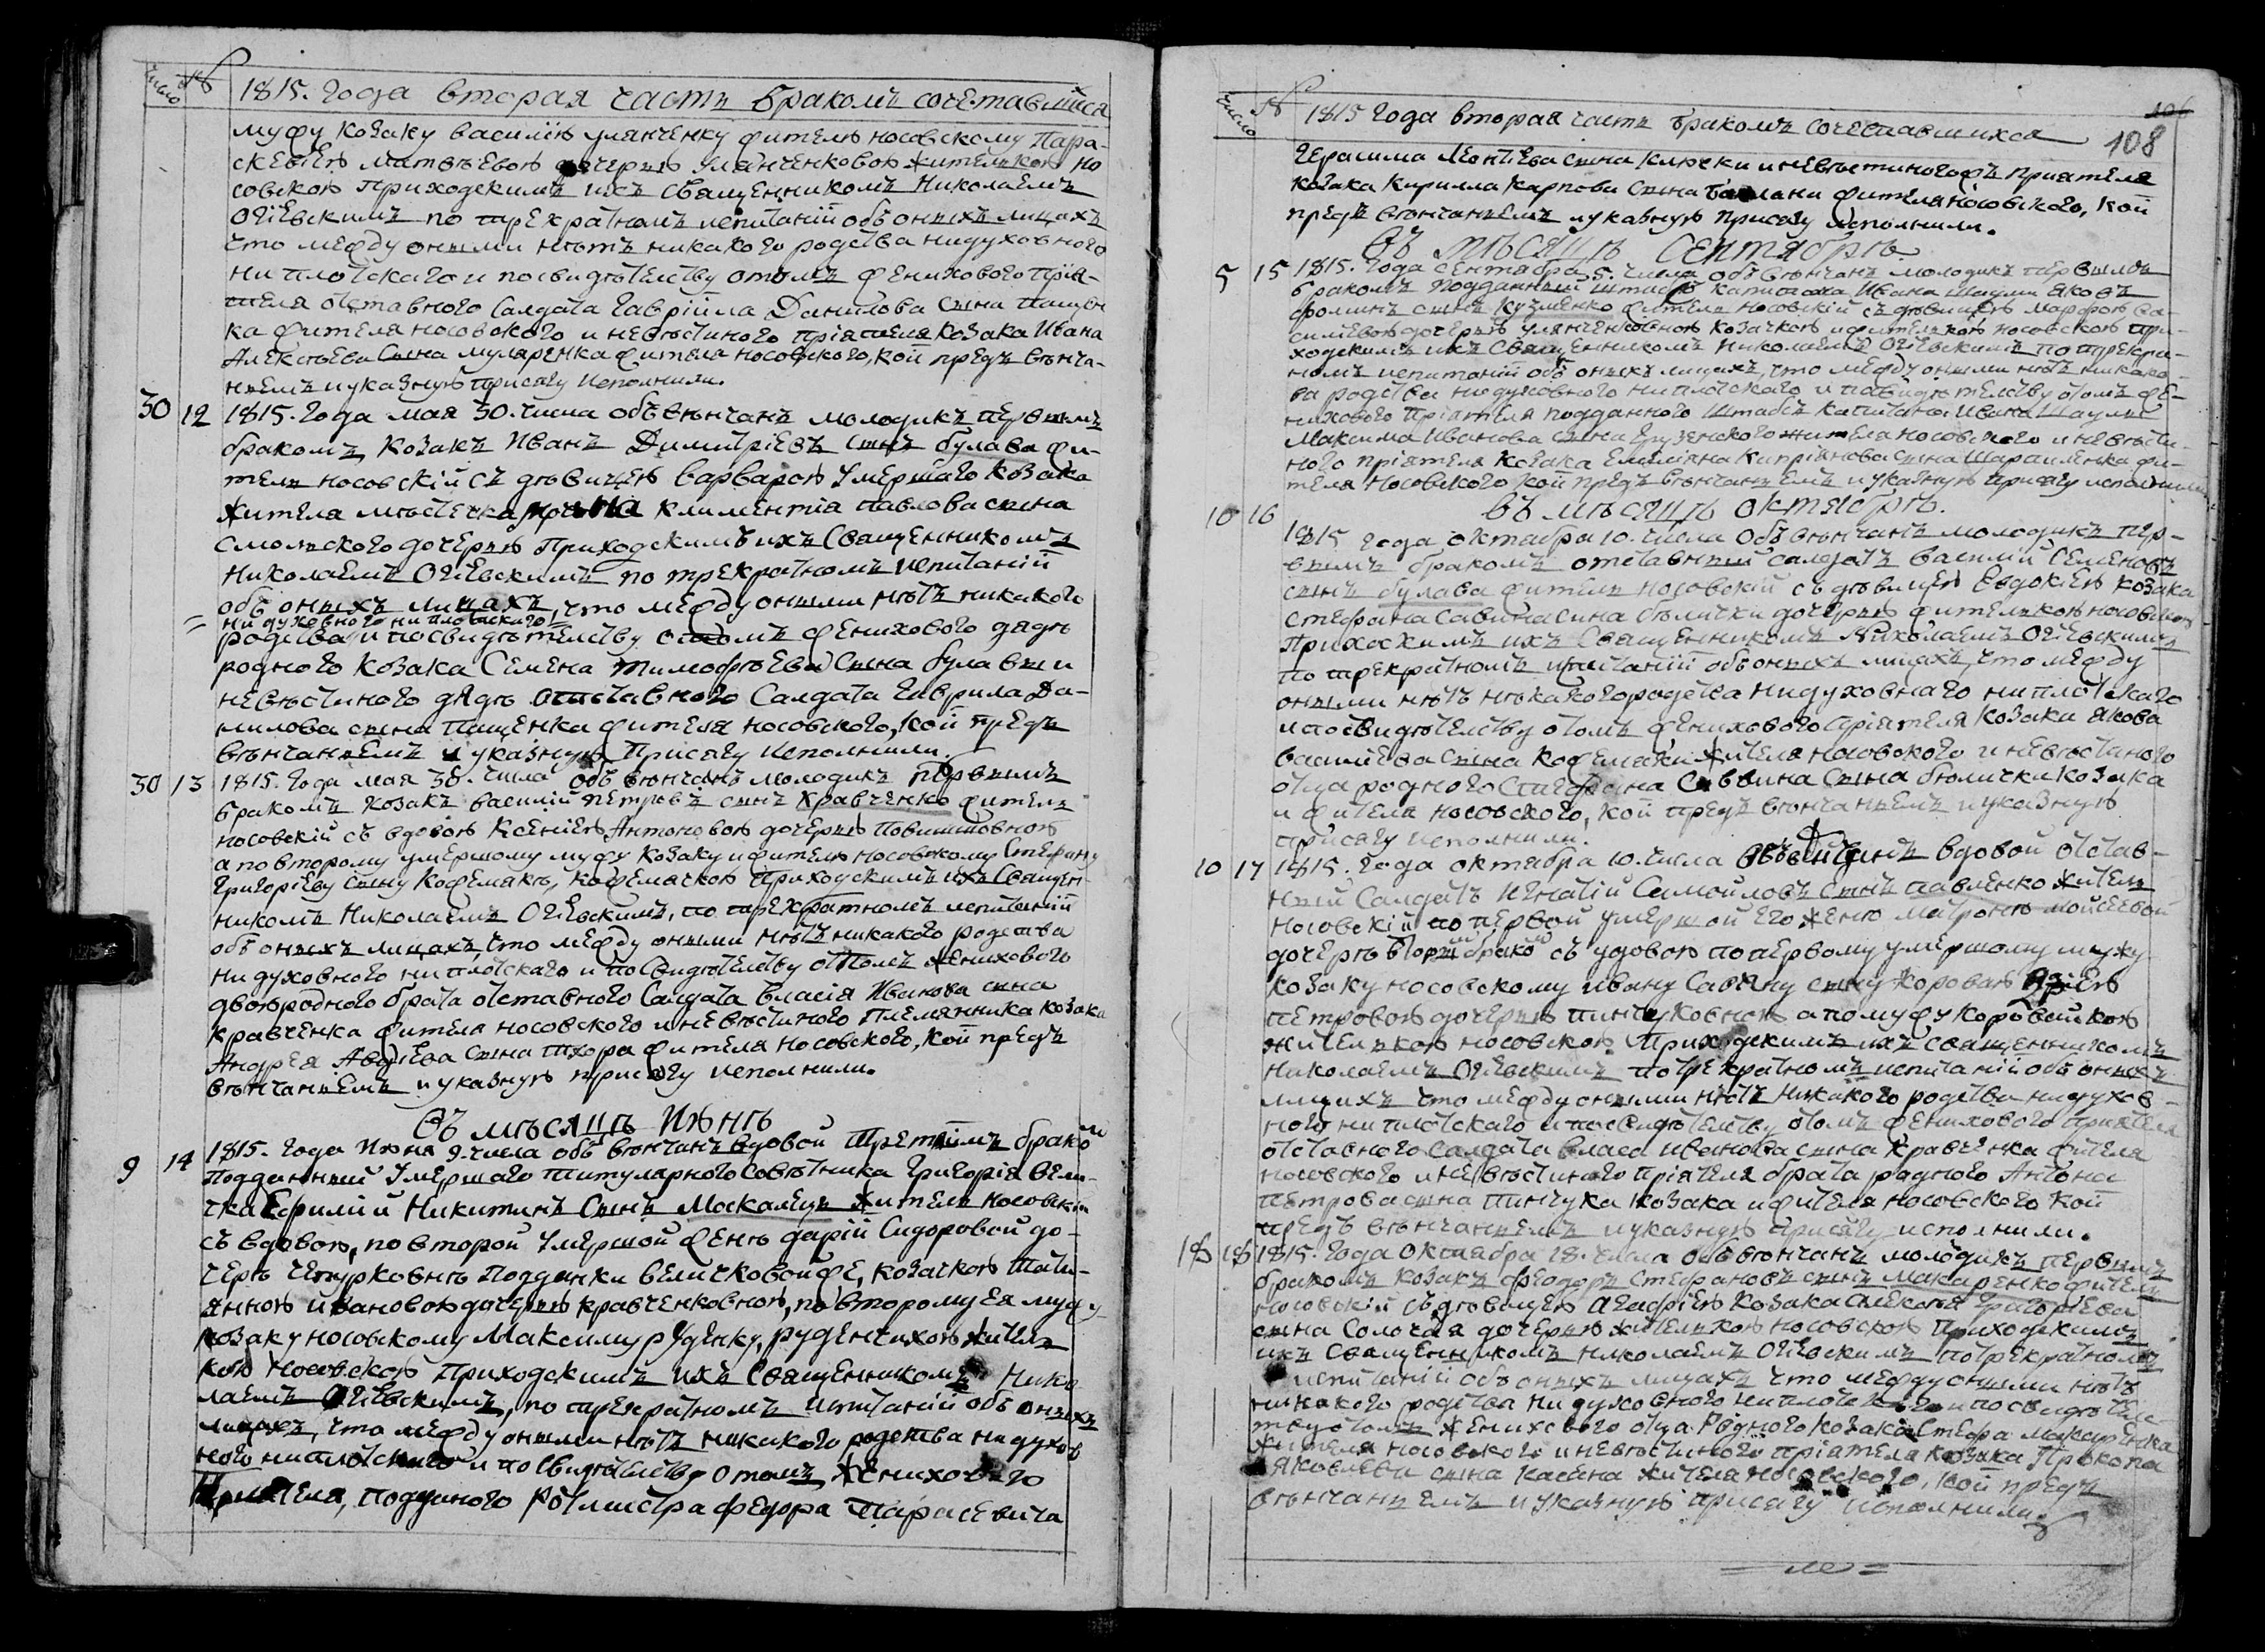 число №
1815. года вторая часть бракомъ сочетавшіися
мужу козаку василію улянченку жителю носовскому Пара-
скевіею матвѣевою дочерью Улянченковою жителькою но
совскою приходскимъ ихъ Священникомъ Николаемъ
Огіевскимъ по трекратномъ испитаніи объ оныхъ лицахъ
что между оными нѣтъ никакого родства нидуховного
ни плотскаго и по свидѣтелству отомъ женихового прія-
теля отставного Салдата Гавріила Данилова сына Пащен
ка жителя носовского и невѣстиного пріятеля козака Ивана
Алексѣева Сына муляренка жителя носовского, кои предъ вѣнча-
ніемъ и указную присягу исполнили.
30 12 1815. Года мая 30. числа объ вѣнчанъ молодикъ первимъ
бракомъ козакъ Иванъ Димитріевъ Сынъ булава жи-
тель носовскій съ дѣвицею варварою Умершаго козака
жителя мѣстечка Климентія павлова сына
Смольского дочерью Приходскимъ ихъ Священникомъ
Николаемъ Огіевскимъ по трекратномъ испитаніи
объ оныхъ лицахъ, что между оными нѣтъ никакого
= ни духовного ни плотскаго
родства и по свидѣтелству отомъ женихового дядѣ
родного козака Семена Тимофѣева Сына булавы и
невѣстиного дядѣ отставного Салдата Гаврила Да-
нилова сына Пащенка жителя носовского, кои предъ
вѣнчаніемъ и указную Присягу исполнили.
30 13 1815. Года мая 30. числа объ вѣнчанъ молодикъ первымъ
бракомъ козакъ василій петровъ сынъ кравченко житель
носовскій съ вдовою Ксеніею Антоновою дочерью
а по второму умершому мужу козаку и жителю носовскому Стефану
Григоріеву сыну Кожемякѣ, кожемячкою приходскимъ ихъ Священ-
никомъ Николаемъ Огіевскимъ, по трекратномъ испитаніи
объ оныхъ лицахъ, что между оными нѣтъ никакого родства
ни духовного ни плотскаго и по свидѣтелству отомъ женихового
двоюродного брата отставного Салдата власія Иванова сына
кравченка жителя носовского и невѣстиного племянника козака
Андрея Авдіева Сына тхора жителя носовского, кои предъ
вѣнчаніемъ и указную присягу исполнили.
Въ мѣсяцѣ Июнѣ
9 14 1815. года Июня 9. числа объ вѣнчанъ вдовой третіимъ бракомъ
Подданный Умершаго титулярного Совѣтника Григорія вели-
чка Ефимій Никитинъ Сынъ Москалець житель носовскій
съ вдовою, по второй Умершой женѣ дарій Сидоровой до-
черѣ подданки величковойже, козачкою Тати-
янною ивановою дочерью кравченковною, по второму ея мужу
козаку носовскому Максиму руденку, руденчихою житель
кою носовскою Приходскимъ ихъ Священникомъ Нико
лаемъ Огіевскимъ, по трекратномъ испитаніи объ оныхъ
лицахъ, что между оными нѣтъ никакого родства ни духов
ного ни плотскаго и по свидѣтелству отомъ женихового
Приятеля, подданого Ротмистра федора Тарасевича
число № 106
1815 Года вторая часть бракомъ сочетавшихся 108
Герасима Леонтіева сына Ключки и невѣстиного приятеля
козака Кирилла Карпова сына жителя носовского, кои
предъ вѣнчаніемъ и указную присягу исполнили.
Въ мѣсяцѣ Сентябрѣ.
5 15 1815. Года сентября 5. числа объ вѣнчанъ молодикъ первымъ
бракомъ подданный штабсъ капитана Ивана Шаули яковъ
сынъ кузменко житель носовскій съ дѣвицею марфою ва-
силіевою дочерью улянченковною козачкою и жителькою носовскою при-
ходскимъ ихъ Священникомъ Николаемъ Огіевскимъ по трекрат-
номъ испитаніи объ оныхъ лицахъ, что между оными нѣтъ никако-
го родства нидуховного ни плотского и по свидѣтелству отомъ же-
нихового пріятеля подданного штабсъ капитана Ивана Шаули
Максима Иванова сына Грузенского жителя носовского и невѣсти-
ного пріятеля козака Емеліяна Кипріянова сына жи-
теля носовского кои предъ вѣнчаніемъ и указную присягу исполнили
Въ мѣсяцѣ октябрѣ.
10 16 1815 года октября 10. числа объ вѣнчанъ молодикъ пер-
вымъ бракомъ отставный салдатъ василій Семеновъ
сынъ булава житель носовскій съ дѣвицею Евдокіею козака
Стефана Савина сына бѣлички дочерью жителькою носовскою
Приходскимъ ихъ Священникомъ Николаемъ Огіевскимъ
по трекратномъ испитаніи объ оныхъ лицахъ, что между
оными нѣтъ никакого родства нидуховнаго ни плотскаго
и по свидѣтелству отомъ женихового пріятеля козака якова
василіева сына кожемяки жителя носовского и невѣстиного
отца родного Стефана Саввина Сына бѣлички козака
и жителя носовского, кои предъ вѣнчаніемъ и указную
присягу исполнили.
10 17 1815. года октября 10. числа объвѣнчанъ вдовой отстав-
ный Салдатъ Игнатій Самойловъ Сынъ павленко житель
носовскій по первой умершой его женѣ Матронѣ Мойсеевой
дочерѣ вторимъ бракомъ съ удовою по первому умершому мужу
козаку носовскому ивану Савину сыну короваю
петровою дочерью пинчуковною а по мужу коровайкою
жителькою носовскою Приходскимъ ихъ священникомъ
николаемъ Огіевскимъ по трекратномъ испитаніи объ оныхъ
лицахъ что между оными нѣтъ никакого родства ни духов-
ного ни плотского и по свидѣтелству отомъ женихового приятеля
отставного салдата власа иванова сына кравченка жителя
носовского и невѣстиного пріятеля брата родного Антона
петрова сына пинчука козака и жителя носовского кои
предъ вѣнчаніемъ и указную присягу исполнили.
18 18 1815. Года октября 18. числа объ вѣнчанъ молодикъ первымъ
бракомъ козакъ феодоръ Стефановъ сынъ Макаренко житель
носовскій съ дѣвицею Агафіею козака Алексѣя Григоріева
сына Солочая дочерью жителькою носовскою Приходскимъ
ихъ Священникомъ николаемъ Огіевскимъ по трекратномъ
испитаніи объ оныхъ лицахъ что между оными нѣтъ
никакого родства ни духовного ни плотского и по свидѣтел-
тву отомъ женихового отца Родного козака Стефана Макаренка
жителя носовского и невѣстиного пріятеля козака Прокопа
яковлева сына Касяна жителя носовского, кои предъ
вѣнчаніемъ и указную присягу исполнили.